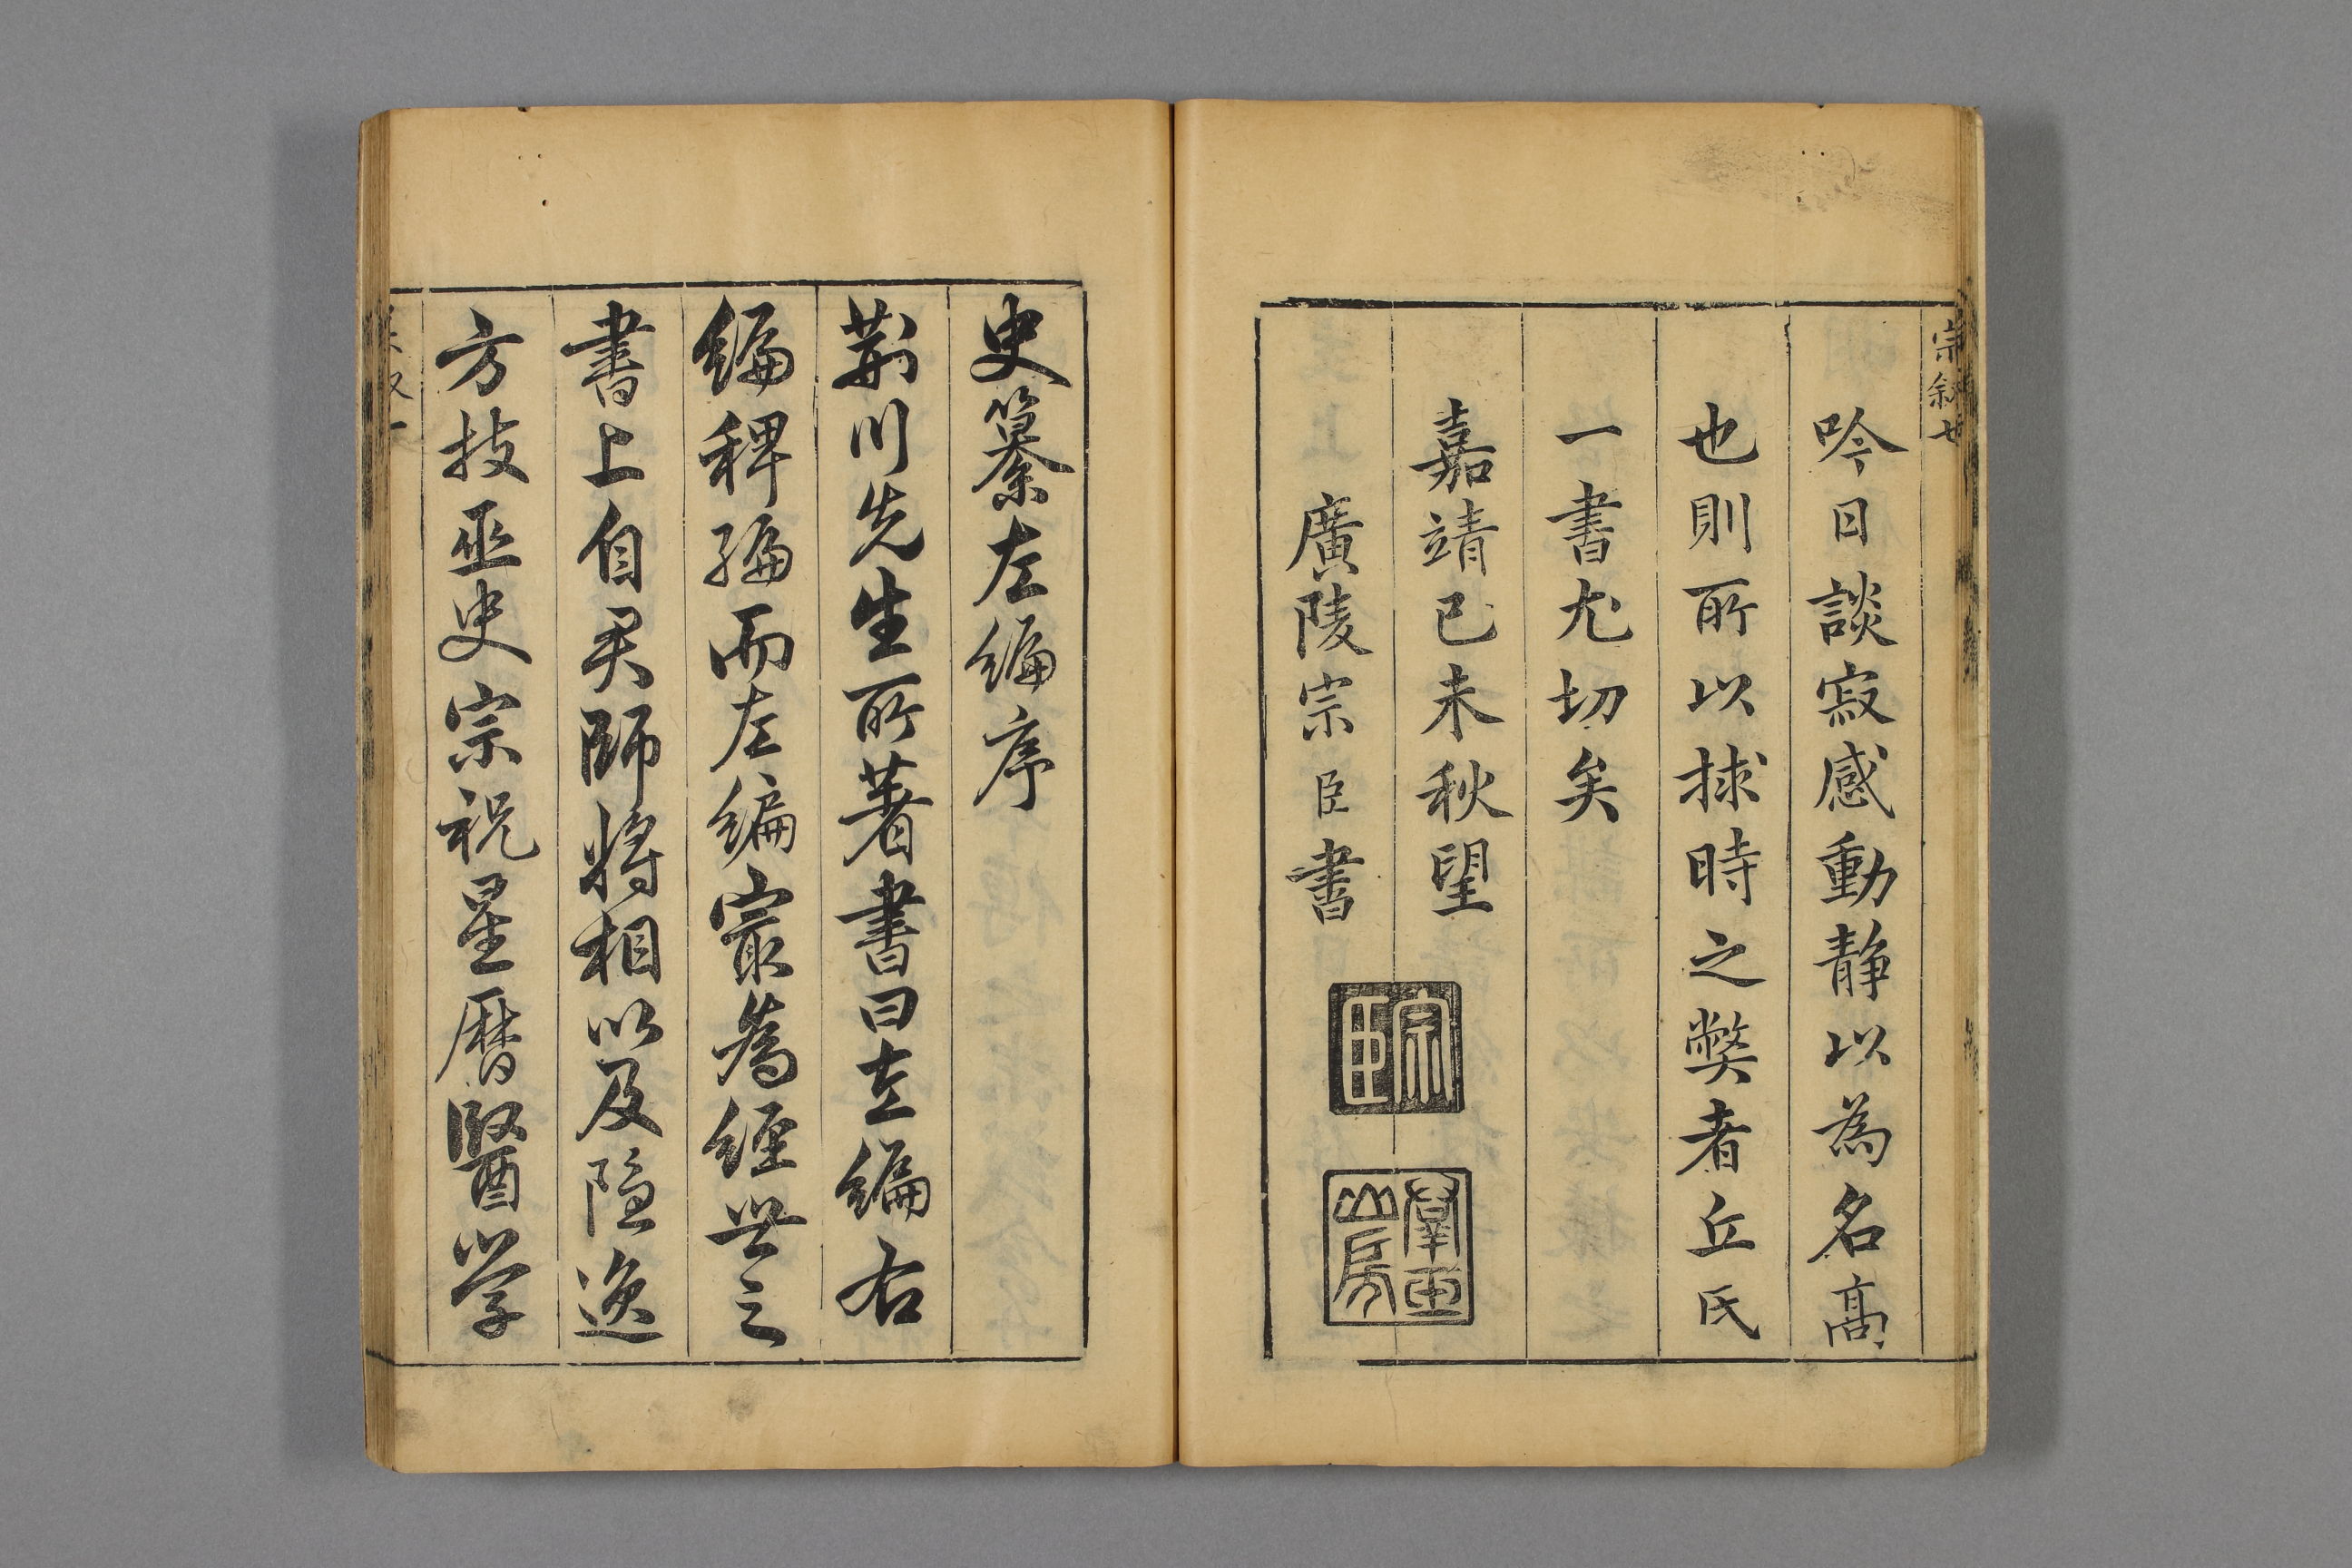 宗叙
吟日談寂感動静以為名髙
也則所以捄時之獘者丘氏
一書尤切矣
嘉靖己未秋望
廣陵宗臣書
宗臣
羣玉山房
史纂左編序
荆川先生所著書曰左編右
編稗編而左編㝡為經世之
書上自君師將相以及隐逸
方技巫史宗祝星暦醫学